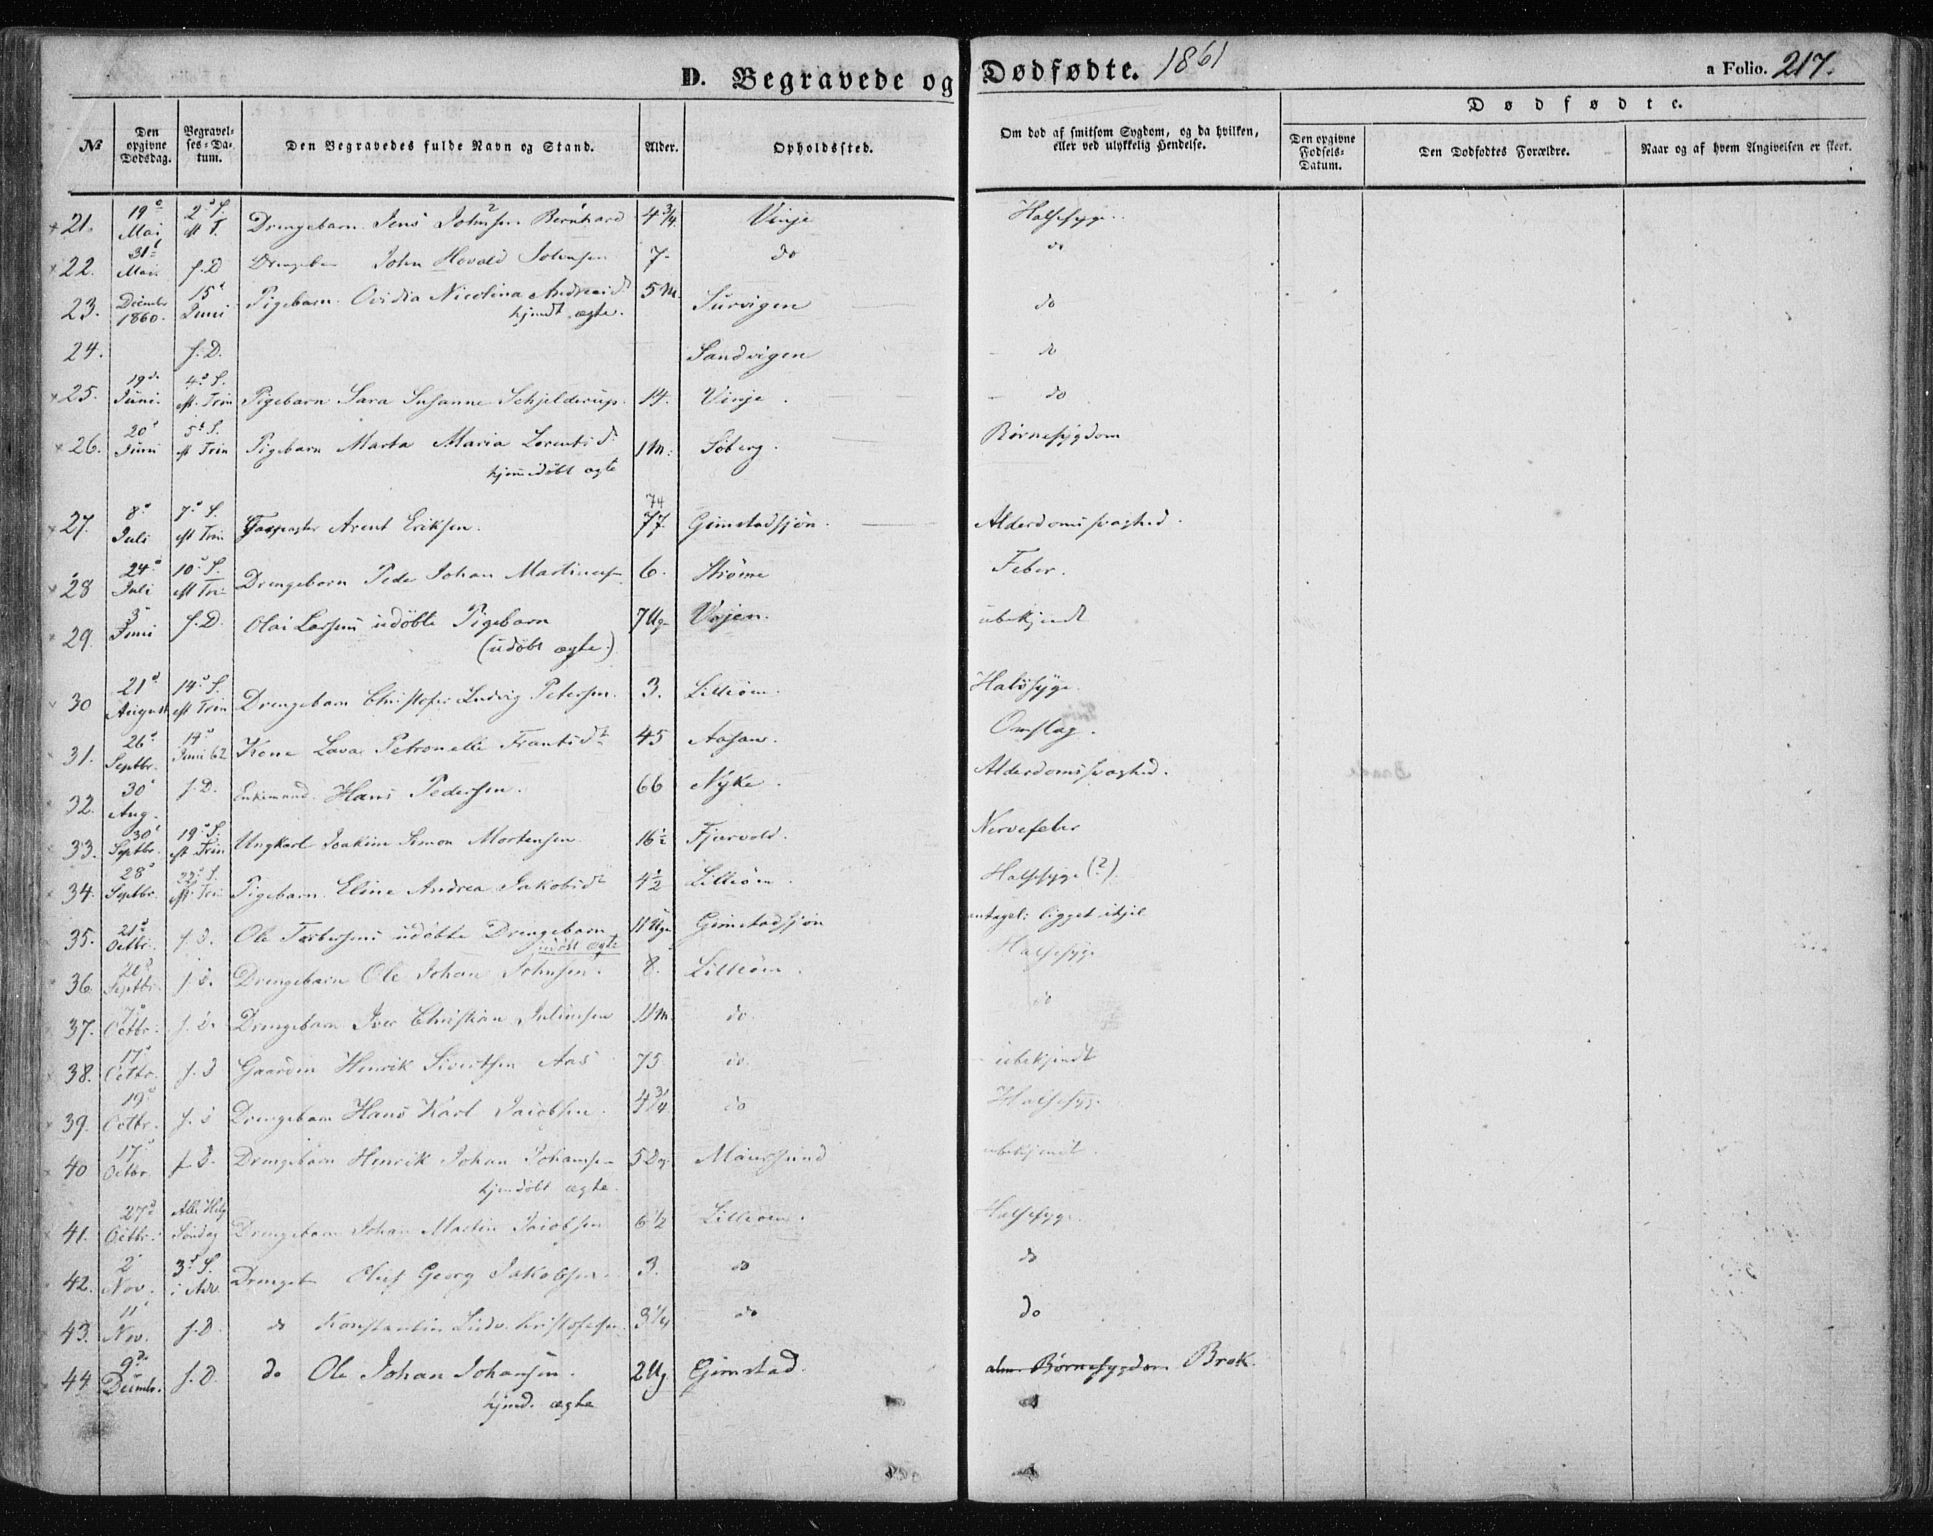 D. Begravede og Dødfødte. 1861
a Folio. 217.
No
Den opgivne Dødsdag.
Begravelses-Datum.
Den Begravedes fulde Navn og Stand.
Alder.
Opholdssted.
Om død af smitsom Sygdom, og da hvilken, eller ved ulykkelig Hendelse.
Dødfødte.
Den opgivne Fødsels-Datum.
Den Dødfødtes Forældre.
Naar og af hvem Angivelsen er skeet.
21. 19de Mai 2d S. eft T. Drengebarn Jens Johnsen Bernhard 4 3/4 Vinje Halssyge.
22. 31te Mai f. D. Drengebn John Hovald Johnsen 7. do do
23. Decmbr 1860. 15d Juni Pigebarn Ovidia Nicolina Andreasd 5 M. Survigen do
hjmdt ægte.
24. f. D. Sandvigen do
25. 19de Juni. 4d S. eft. Trin Pigebarn Sara Susanne Schjelderup. 14. Vinje. do
26. 20d Juni 5d S. eft Trin Pigebarn Marta Maria Lorentsd. 1 M. Søberg. Børnesygdom
hjemedøbt ægte
27. 8d Juli 7d S. eft Trin Arent Eriksen. 74 77. Gimstadsjøn. Alderdomssvaghed.
28 24d Juli 10d S. eft Tri Drengebarn Peder Johan Martinusn 6. Strøme Feber.
29. 3d Juni f. D. Olai Larsens udøbte Pigebarn 7 Ug. Vojen. ubekjendt
(udøbt ægte.)
30 21d August 14d S. eft Trin Drengebarn Christofer Ludvig Petersen. 3. Lilleøen. Halssyge.
31. 26d Septbr. 19d Juni 62 Kone Lava Petronelle Frantsdt 45 Aasan. Omslag.
32. 30d Aug. f. D. Enkemand. Hans Pedersen. 66 Nyke. Alderdomssvaghed.
33. 30d Septbr. 19d S. eft Trin Ungkarl Joakim Simon Mortensen 16 1/2 Fjærvold. Nervefeber
34. 28d Septbr. 22d S. eft. Tri Pigebarn Eline Andrea Jakobsdt 4 1/2 Lilleøen. Halssyge (?)
35. 21d Octbr. f. d. Ole Torbersens udøbte Drengebarn 11 Uge Gimstadsjøn antagel: ligget ihjel
udøbt ægte
36. 20d Septbr. f. d. Drengebarn Ole Johan Johnsen. 8. Lilleøen. Halssyge
37. 7d Octbr. f. d. Drengebarn Iver Christian Juliussen 11 M. do. do
38. 17d Octbr. f. d Gaardm Henrik Sivertsen Aas 75. do. ubekjendt
39. 19d Octbr. f. d Drengebarn Hans Karl Jacobsen. 4 3/4. do Halssyge.
40 17d Octbr. f. D. Drengebarn Henrik Johan Johansen 5 Dg. Maursund ubekjendt.
hjemdøbt ægte.
41. 27d Octbr. Alle Helg Søndag Drengebarn Johan Martin Jacobsen 6 1/2 Lilleøen. Halssyge.
42. 2d Nov. 3d S. i Adv. Drengeb Oluf Georg Jakobsen. 3. do do
43. 11d Nov. f. D. do Konstantin Ludv. Kristofersen 3 1/4 do do
44 9de Decmbr. f. D. do Ole Johan Johansen. 2 Ug. Gimstad. alm. Børnesygdom Brok.
hjmd. ægte